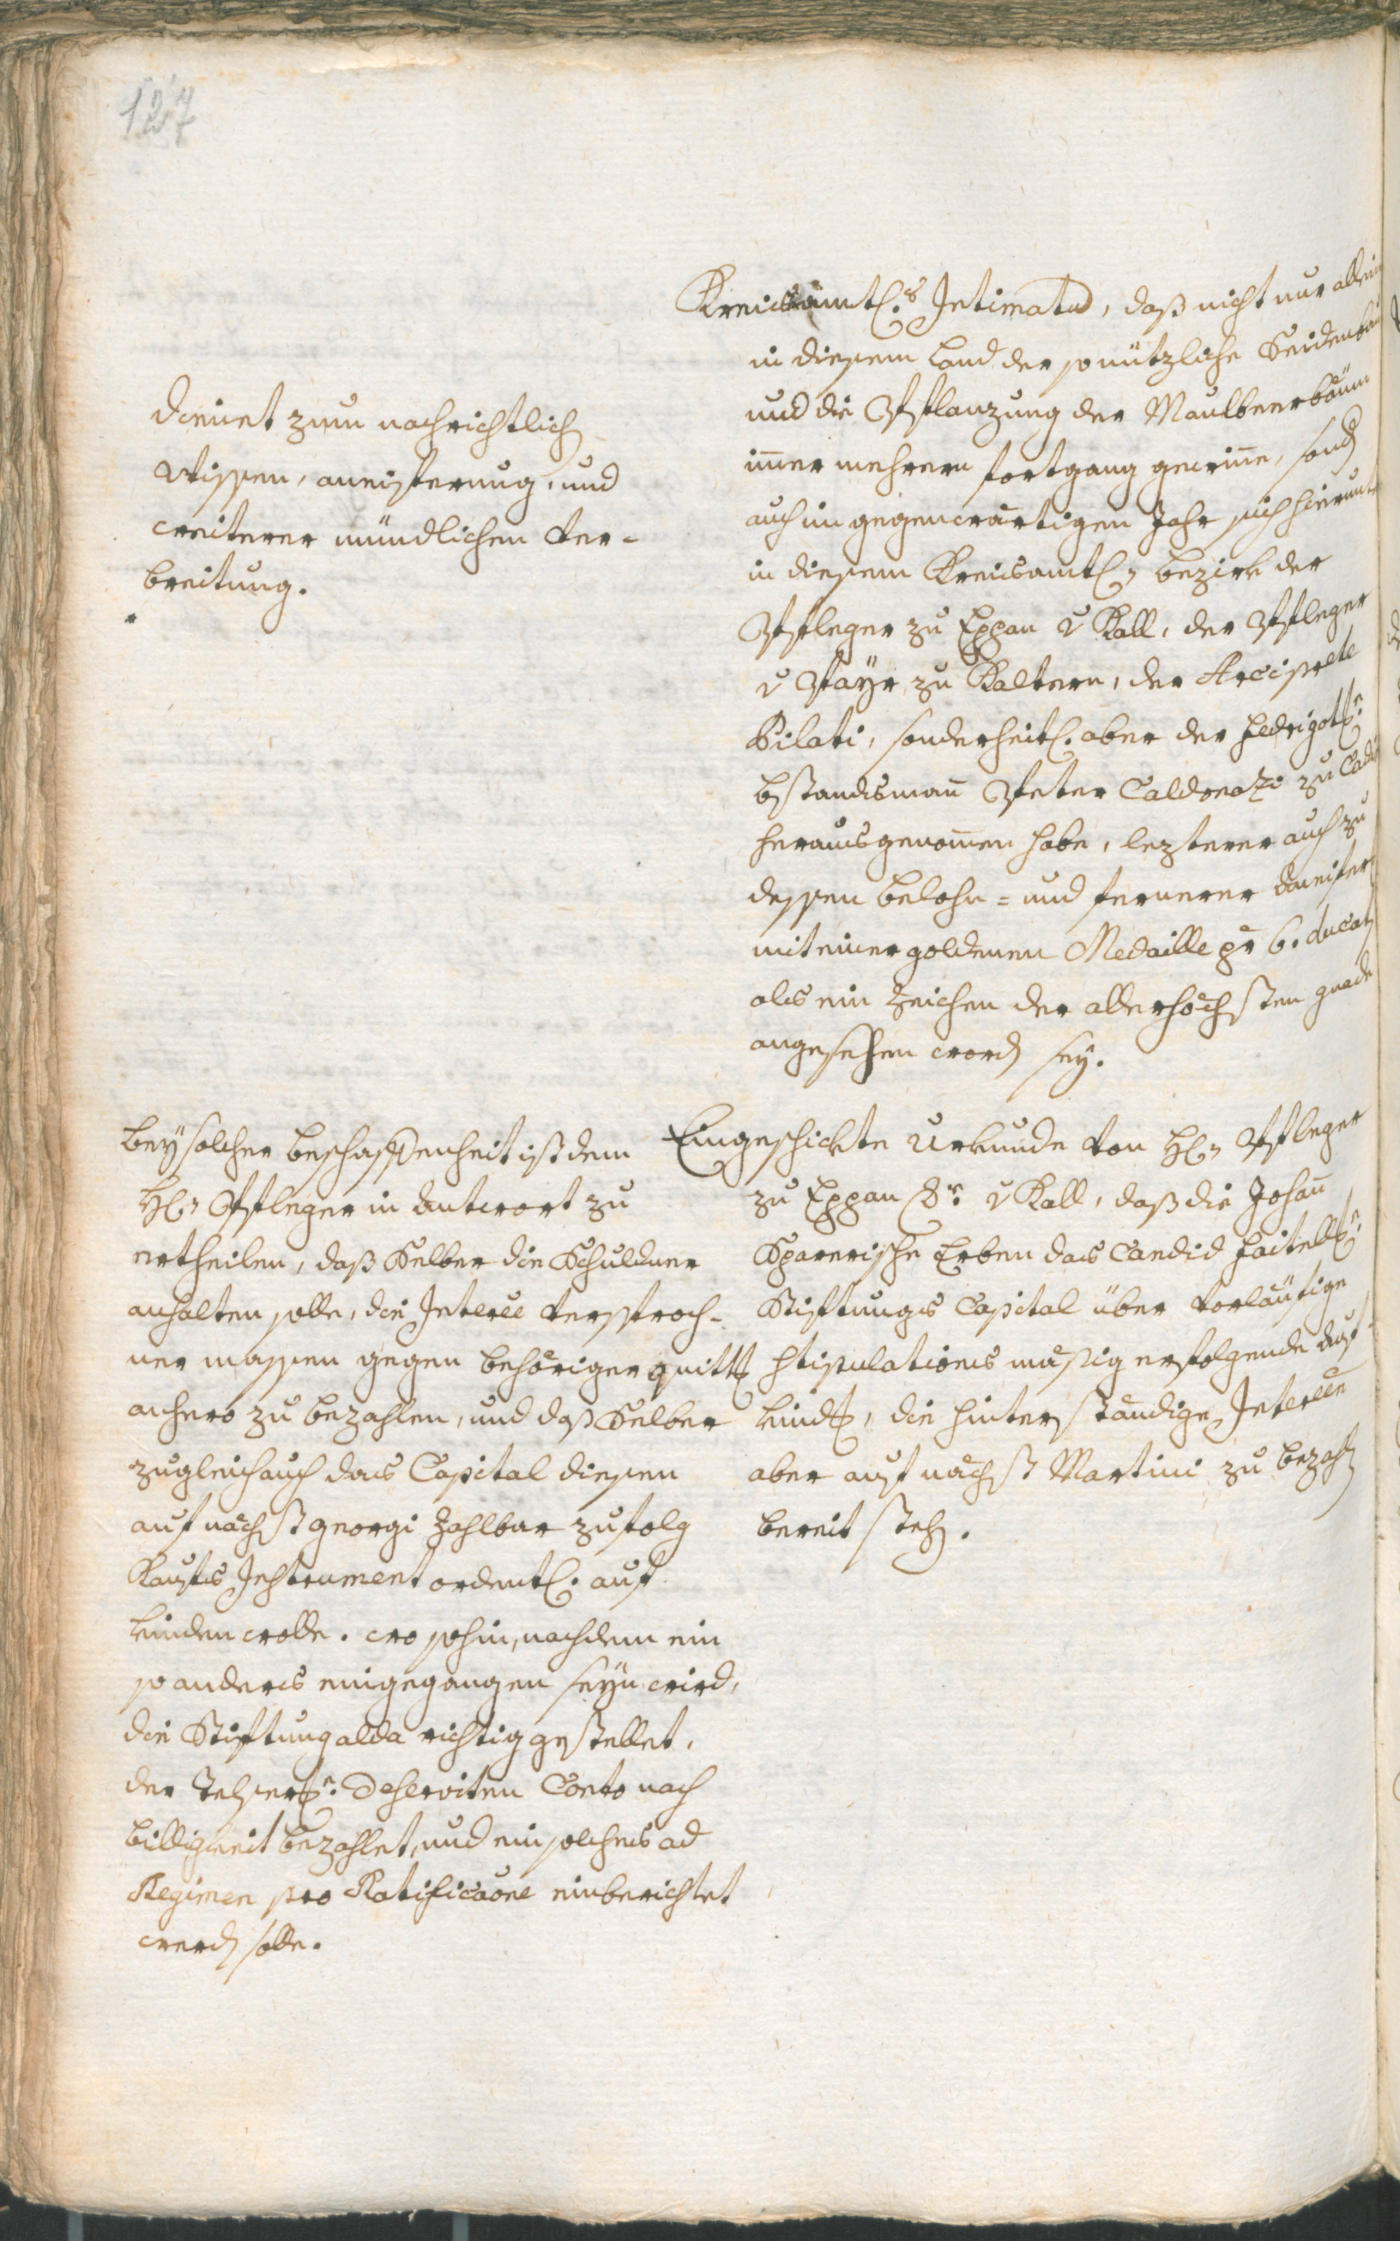 127
Kreisamtl.s Intimatum, daß nicht nur allein
in diesem Land der so nützliche Seidenbau
und die Pflanzung der Maulbeerbäum
immer mehrern fortgang gewinne, sond
auch im gegenwärtigen Jahr sich hierunter
in diesem Kreisamtl. bezirk der
Pfleger zu Eppan v Kall, der Pfleger
v Payr zu Kaltern, der Arciprete
Pilati, sonderheitl. aber der Fedrigott:
bstandsmañ Peter Caldonazi zu
heraus genom̃en habe, lezterer auch zu
dessen belohn= und fernerer
mit einer goldenen Medaille pr 6. ducat
als ein Zeichen der allerhöchsten gnade
angesehen word sey.
dienet zum nachrichtlich
Wissen, aneiferung, und
weiterer mündlichen ver-
breitung.
Eingeschickte Urkunde von H. Pfleger
zu Eppan v Kall, daß die Johañ
Sparerische Erben das Candid
Stiftungs Capital über vorläufige
Stipulations mäßig erfolgende auf
kindt, die hinterständige Interesse
aber auf nächst Martini zu bezahl
bereit steh.
bey solcher beschaffenheit ist dem
H. Pfleger in Antwort zu
ertheilen, daß Selber die Schuldner
anhalten solle, die Interesse versproch-
ner massen gegen behöriger quitt
anhero zu bezahlen, und daß Selber
zugleich auch das Capital diesen
auf nächst georgi zahlbar zufolg
Kaufs Instrument ordentl. auf
kinden wolle. wo sohin, nachdem ein
so anders eingegangen seyn wird,
die Stiftung alda richtig gestellet,
der Deserviten Conto nach
billigkeit bezahlet, und ein solches ad
Regimen pro Ratificaone einberichtet
werd solle.